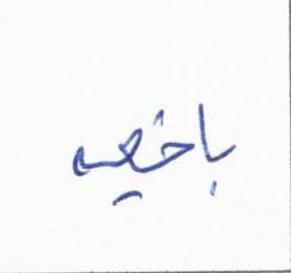 باخيه